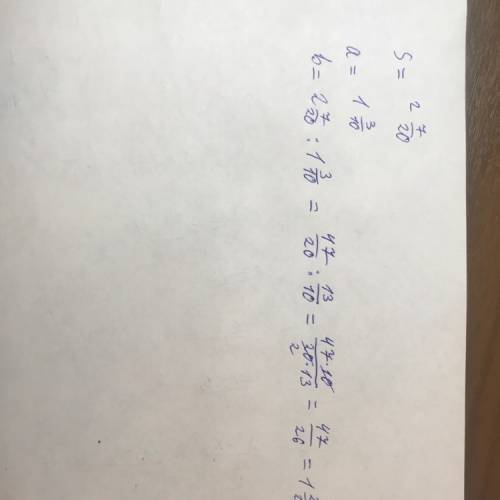 S = 2 7/20
a = 1 3/10
b = 2 7/20 : 1 3/10 = 47/20 : 13/10 = 47·10/20·13 2 = 47/26 = 1